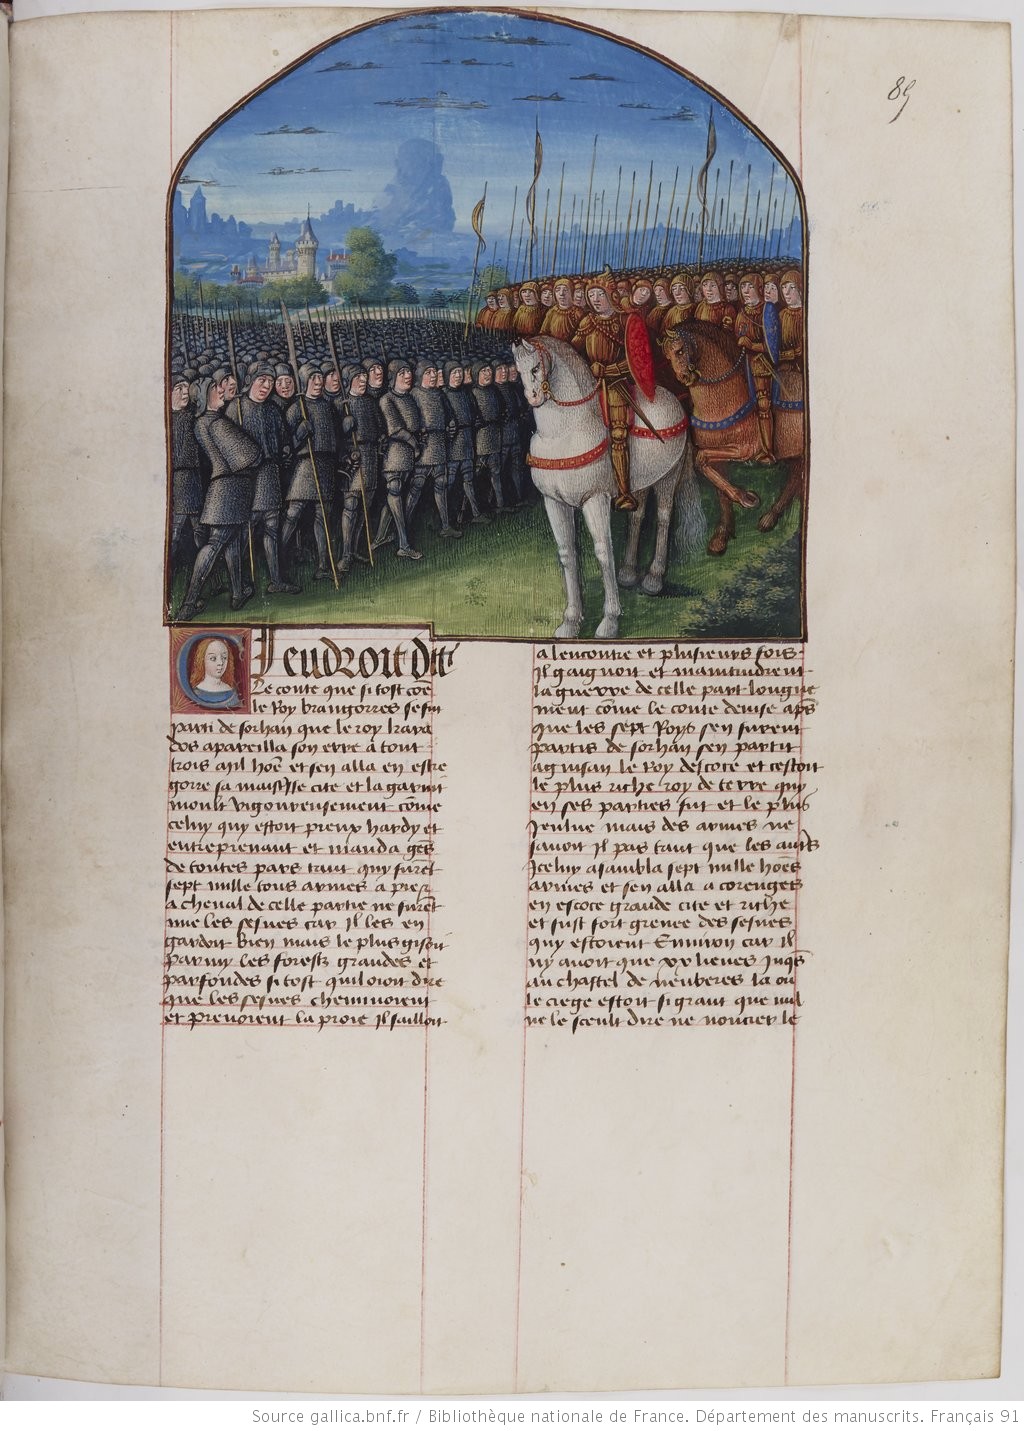 89
Cy endroit dit
le conte que si tost cõe
le Roy brangorres se fut
parti de sorhan que le roy kara
dos apareilla son erre a tout
trois mil hoẽs et sen alla en estre
gorre sa maistresse cite et la garnit
moult vigoureusement cõme
celuy qui estoit preux hardy et
entreprenant et manda gẽs
de toutes pars tant quil furẽt
sept mille tous armes a pie &
a cheval de celle partie ne furẽt
mie les sesnes car Il les en
gardoit bien mais le plus gisoit
parmy les forestz grandes et
parfondes si tost quil oioit dire
que les sesnes cheminoient
et prenoient la proie Il sailloit
a lencontre et plusieurs fois
Il gaignoit et maintindrent
la guerre de celle part longue
ment cõme le conte devise apš
que les sept Roys sen furent
partis de sorhan sen partit
aguisan le Roy descote et cestoit
le plus riche roy de terre qui
en ses parties fut et le plus
Jeulne mais des armes ne
savoit Il pas tant que les autš
Icelui asambla sept mille hoẽs
armes et sen alla a corenges
en escote grande cite et riche
et fust fort grevee des sesnes
qui estoient Environ car Il
ny avoit que xx lieues Jusqš
au chastel de veuberes la ou
le ciege estoit si grant que nul
ne le sceult dire ne noncier le
Source gallica.bnf.fr / Bibliothèque nationale de France. Département des manuscrits. Français 91